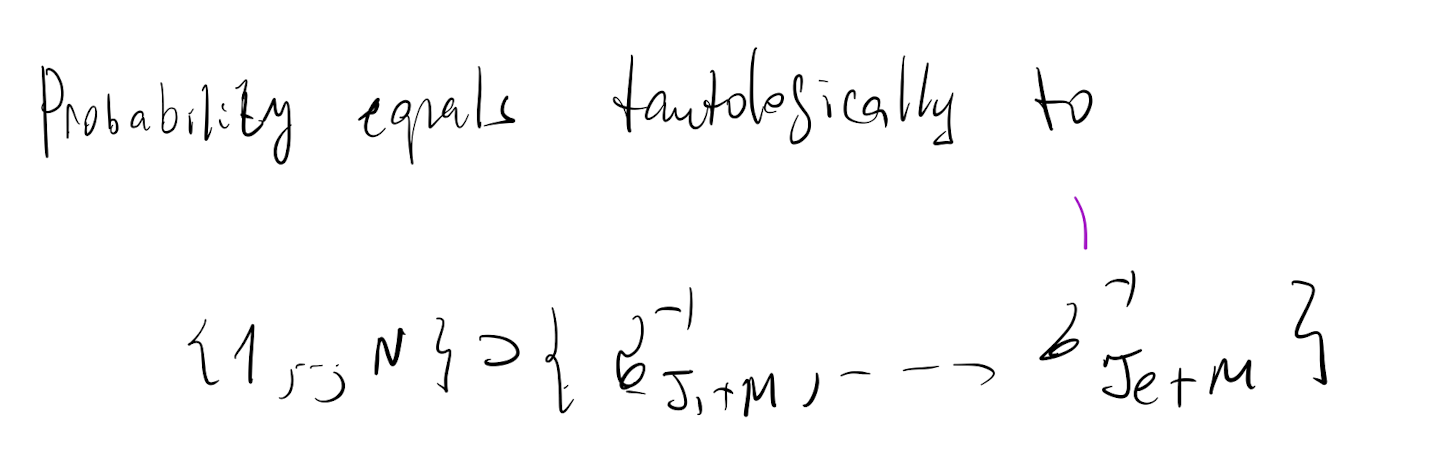 Probability equals tautologically to
{1,...,N} ⊃ { σ^{-1}_{J_1+M}, ..., σ^{-1}_{J_e+M} }